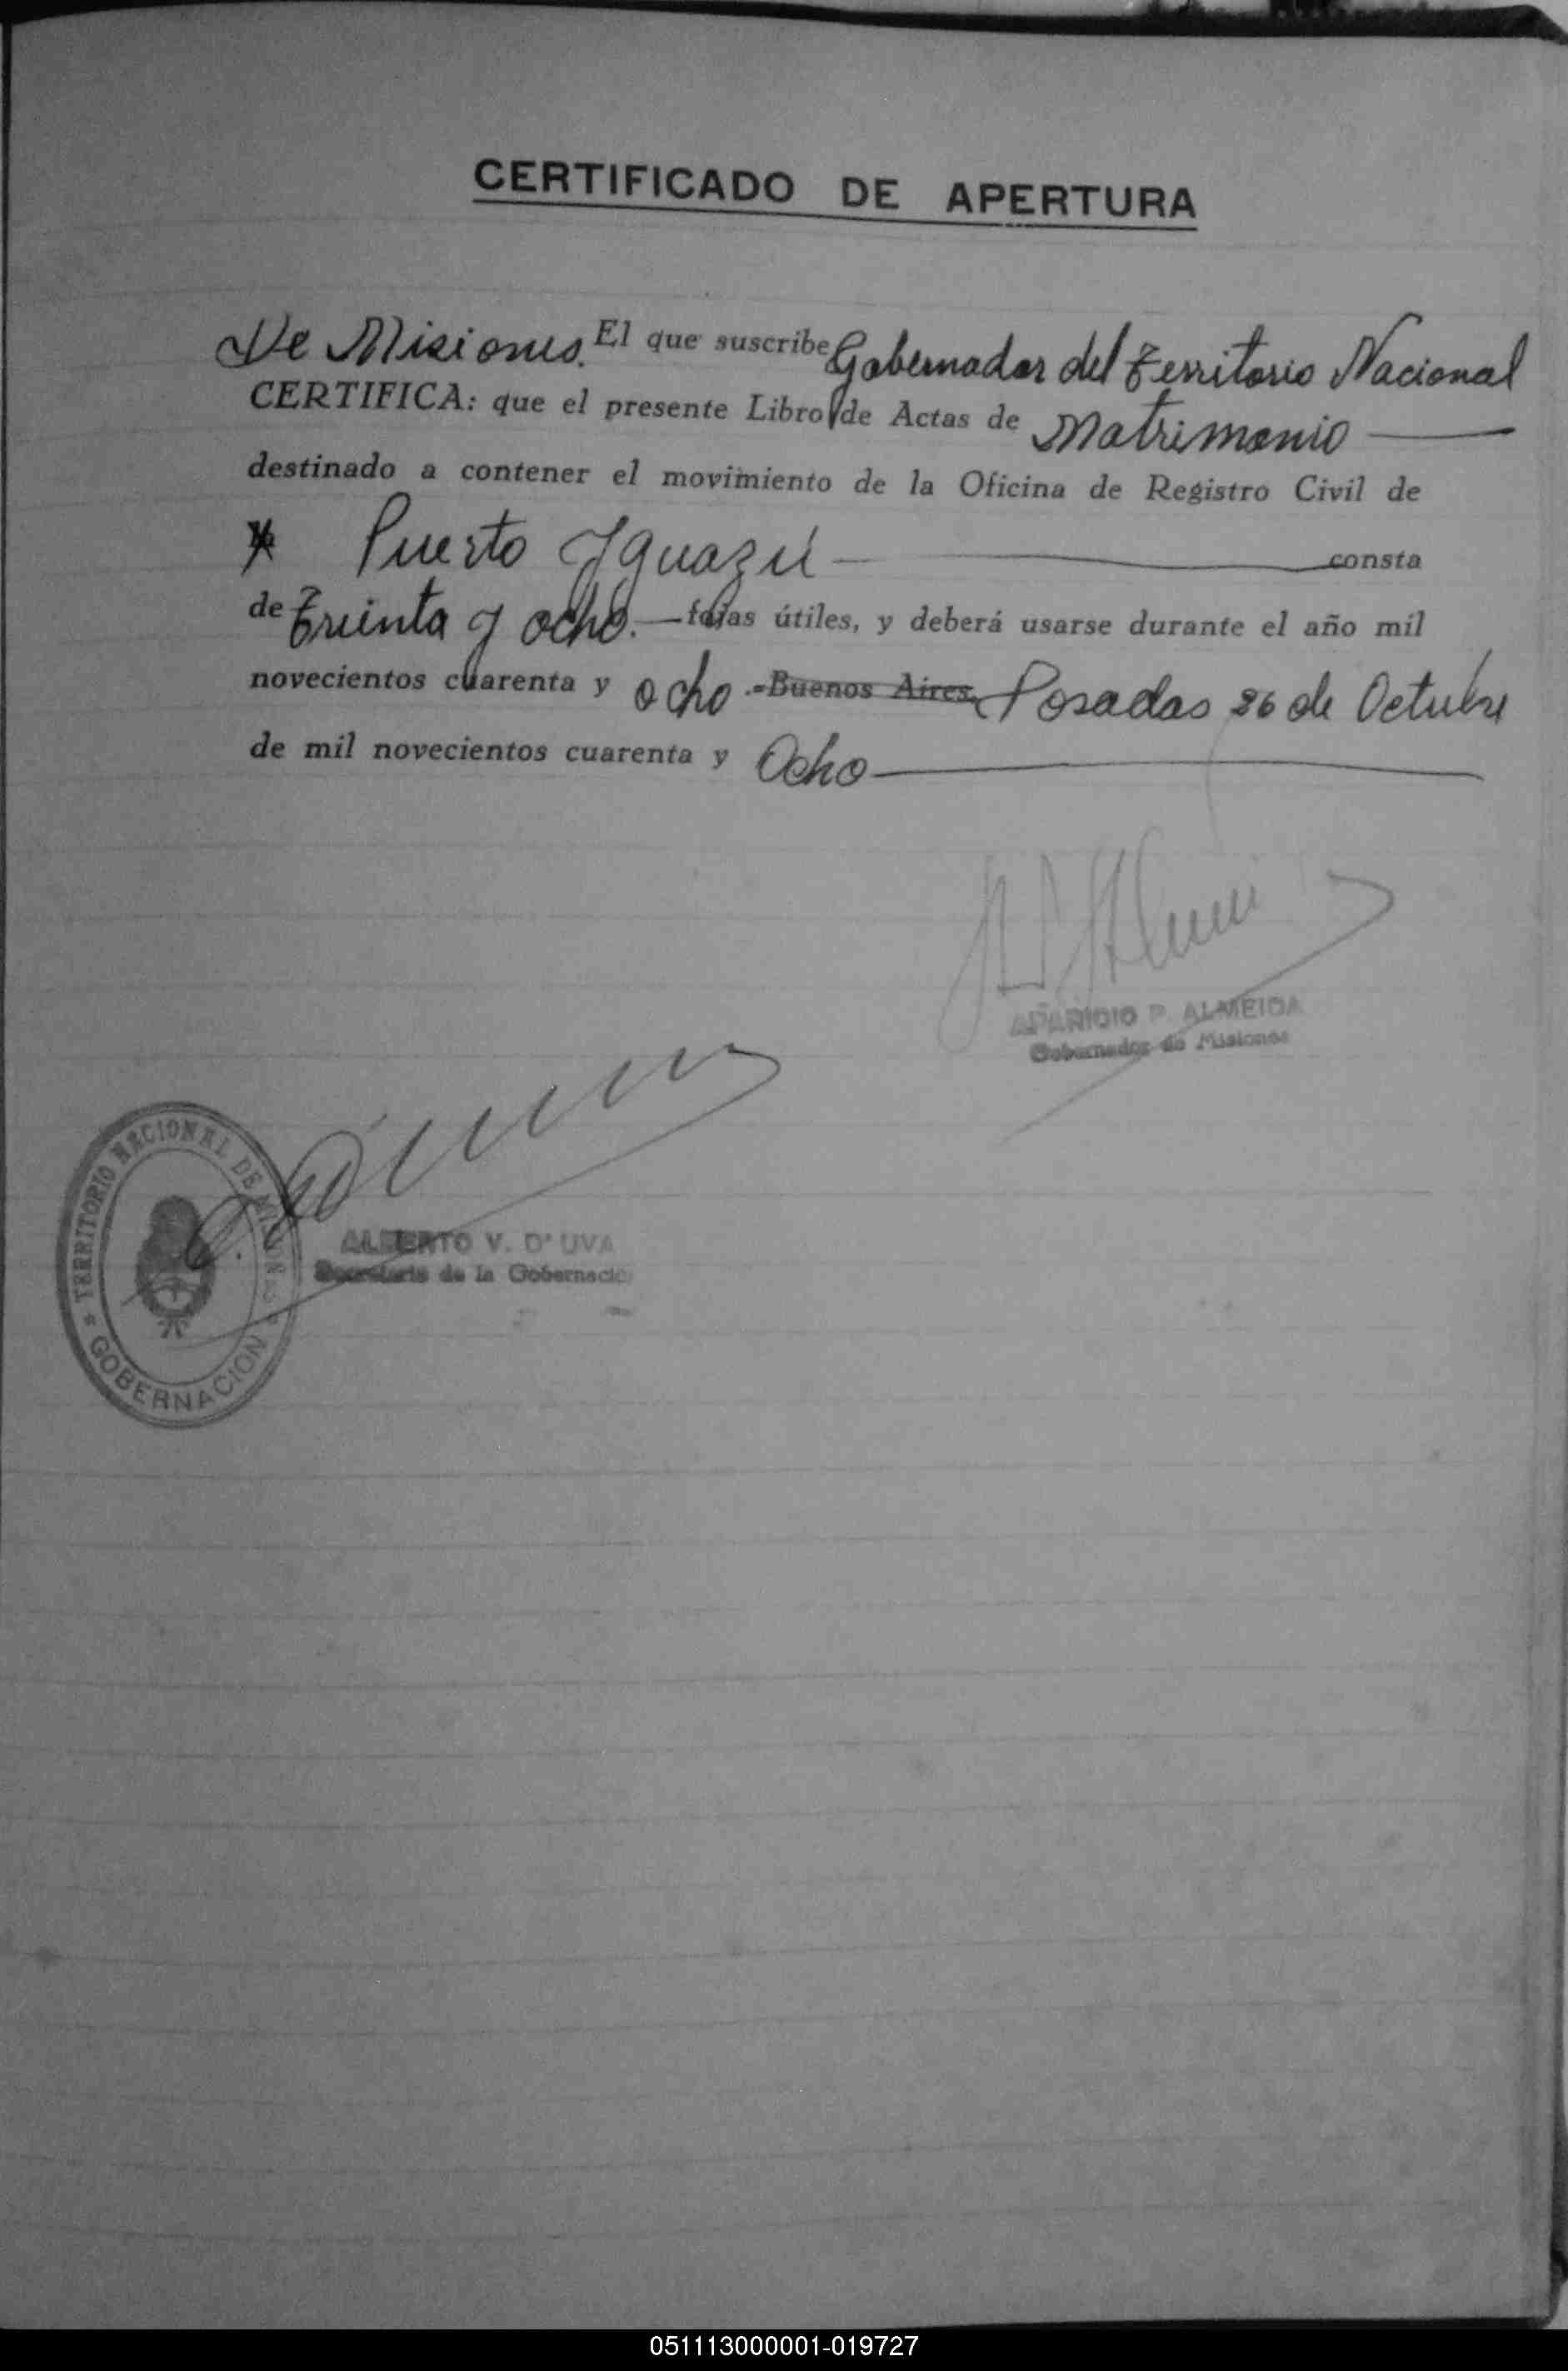 CERTIFICADO DE APERTURA
De Misiones. El que suscribe Gobernador del Territorio Nacional
CERTIFICA: que el presente Libro de Actas de Matrimonio
destinado a contener el movimiento de la Oficina de Registro Civil de
Puerto Iguazú consta
de Treinta y ocho.— fojas útiles, y deberá usarse durante el año mil
novecientos cuarenta y ocho .-Buenos Aires, Posadas 26 de Octubre
de mil novecientos cuarenta y Ocho
APARICIO P. ALMEIDA
Gobernador de Misiones
TERRITORIO NACIONAL DE MISIONES
GOBERNACION
ALBERTO V. D'UVA
Secretario de la Gobernación
051113000001-019727